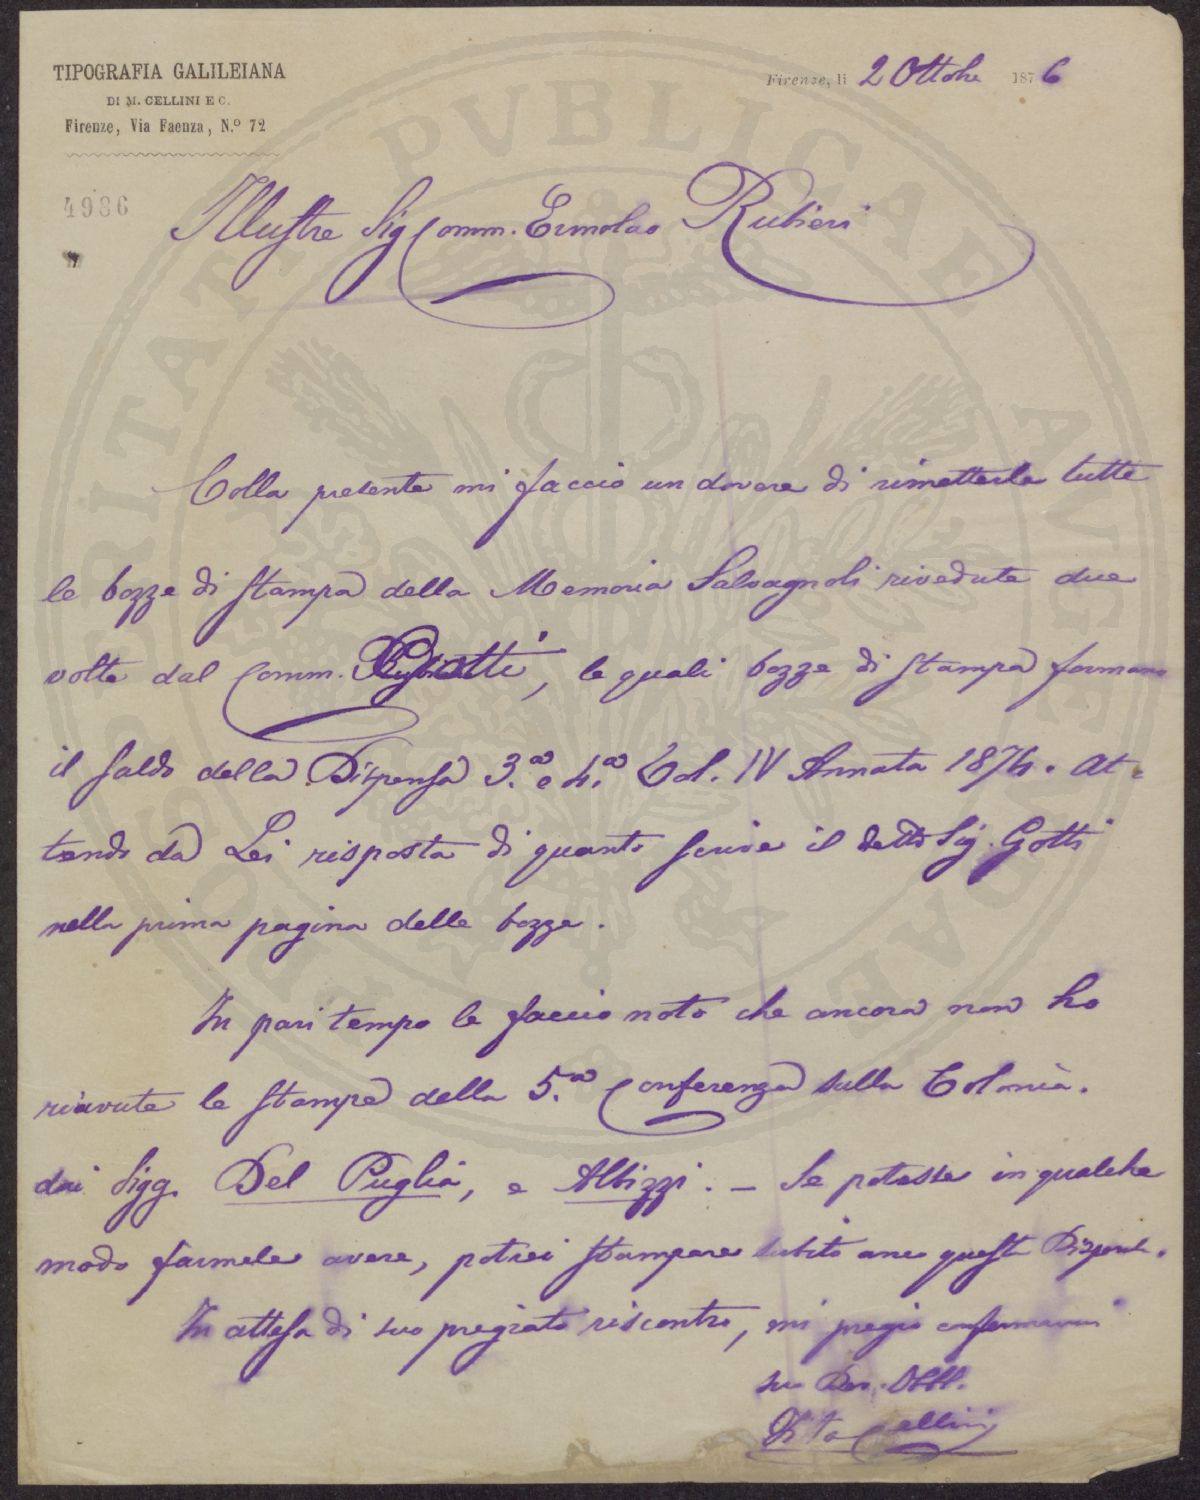 TIPOGRAFIA GALILEIANA
DI M. CELLINI E C.
Firenze, Via Faenza, N.º 72
Firenze, li 2 Ottobre 1876
4986
PVBLICAE
Illustre Sig Comm. Ermolao Rubieri
Colla presente mi faccio un dovere di rimetterle tutte
le bozze di stampa della Memoria Salvagnoli rivedute due
volte dal Comm. Gotti, le quali bozze di stampa formano
il saldo della Dispensa 3.ª e 4.ª Vol. IV Annata 1874. At-
tendo da Lei risposta di quanto scrive il detto Sig. Gotti
nella prima pagina delle bozze.
In pari tempo le faccio noto che ancora non ho
riavute le stampe della 5.ª Conferenza sulla Colonia.
dai Sigg. Del Puglia, e Albizzi. - Se potesse in qualche
modo farmele avere, potrei stampare subito anco questa Dispensa.
In attesa di suo pregiato riscontro, mi pregio confermarmi
suo Dev. Obbl.
Cellini